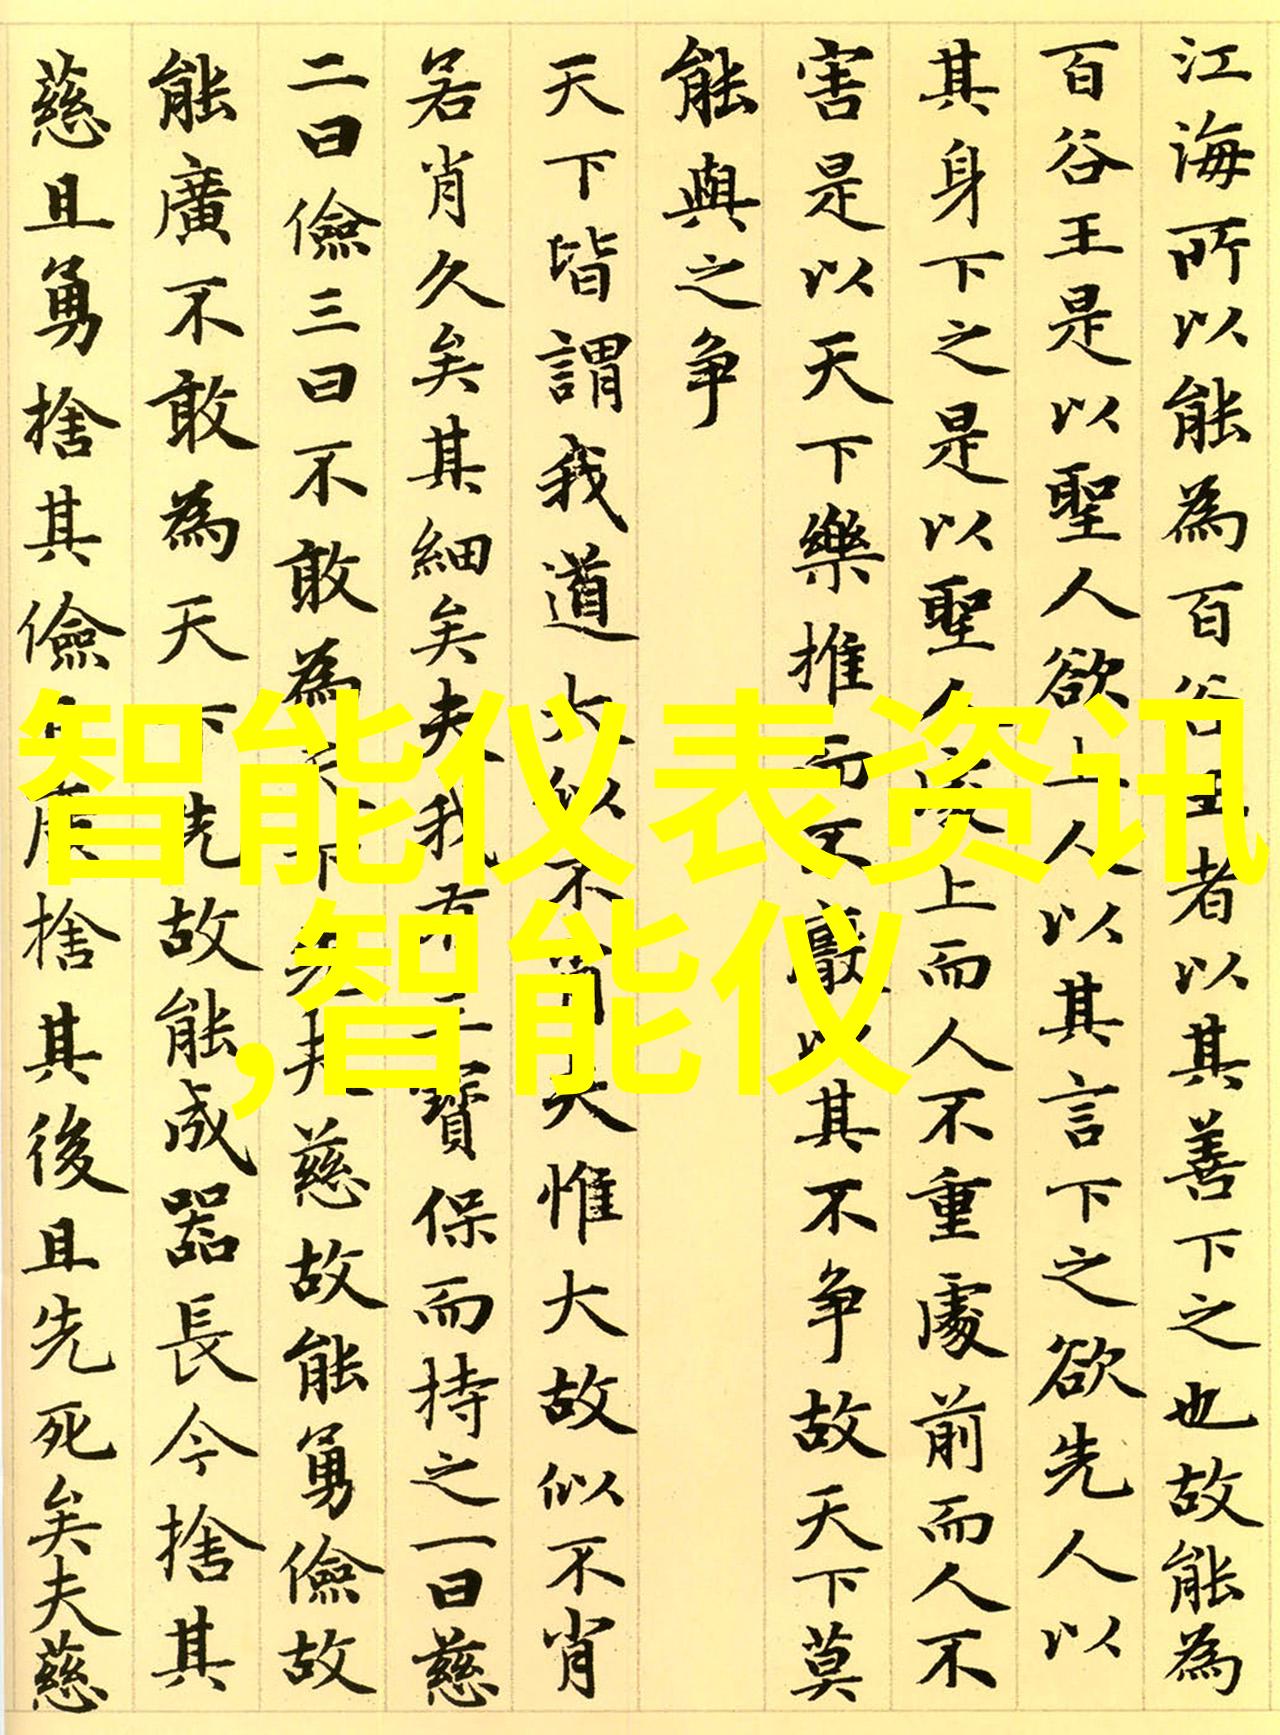 江海所以能為百谷王者以其善下之也故能為
百谷王是以聖人欲上人以其言下之欲先人以
其身下之是以聖人處上而人不重處前而人不
害是以天下樂推而不厭以其不争故天下莫
能與之争
天下皆謂我道大似不肖夫惟大故似不肖
若肖久矣其細矣夫我有三寶保而持之一曰慈
二曰儉三曰不敢為天下先夫慈故能勇儉故
能廣不敢為天下先故能成器長今捨其
慈且勇捨其儉且廣捨其後且先死矣夫慈
智能仪表资讯
,智能仪